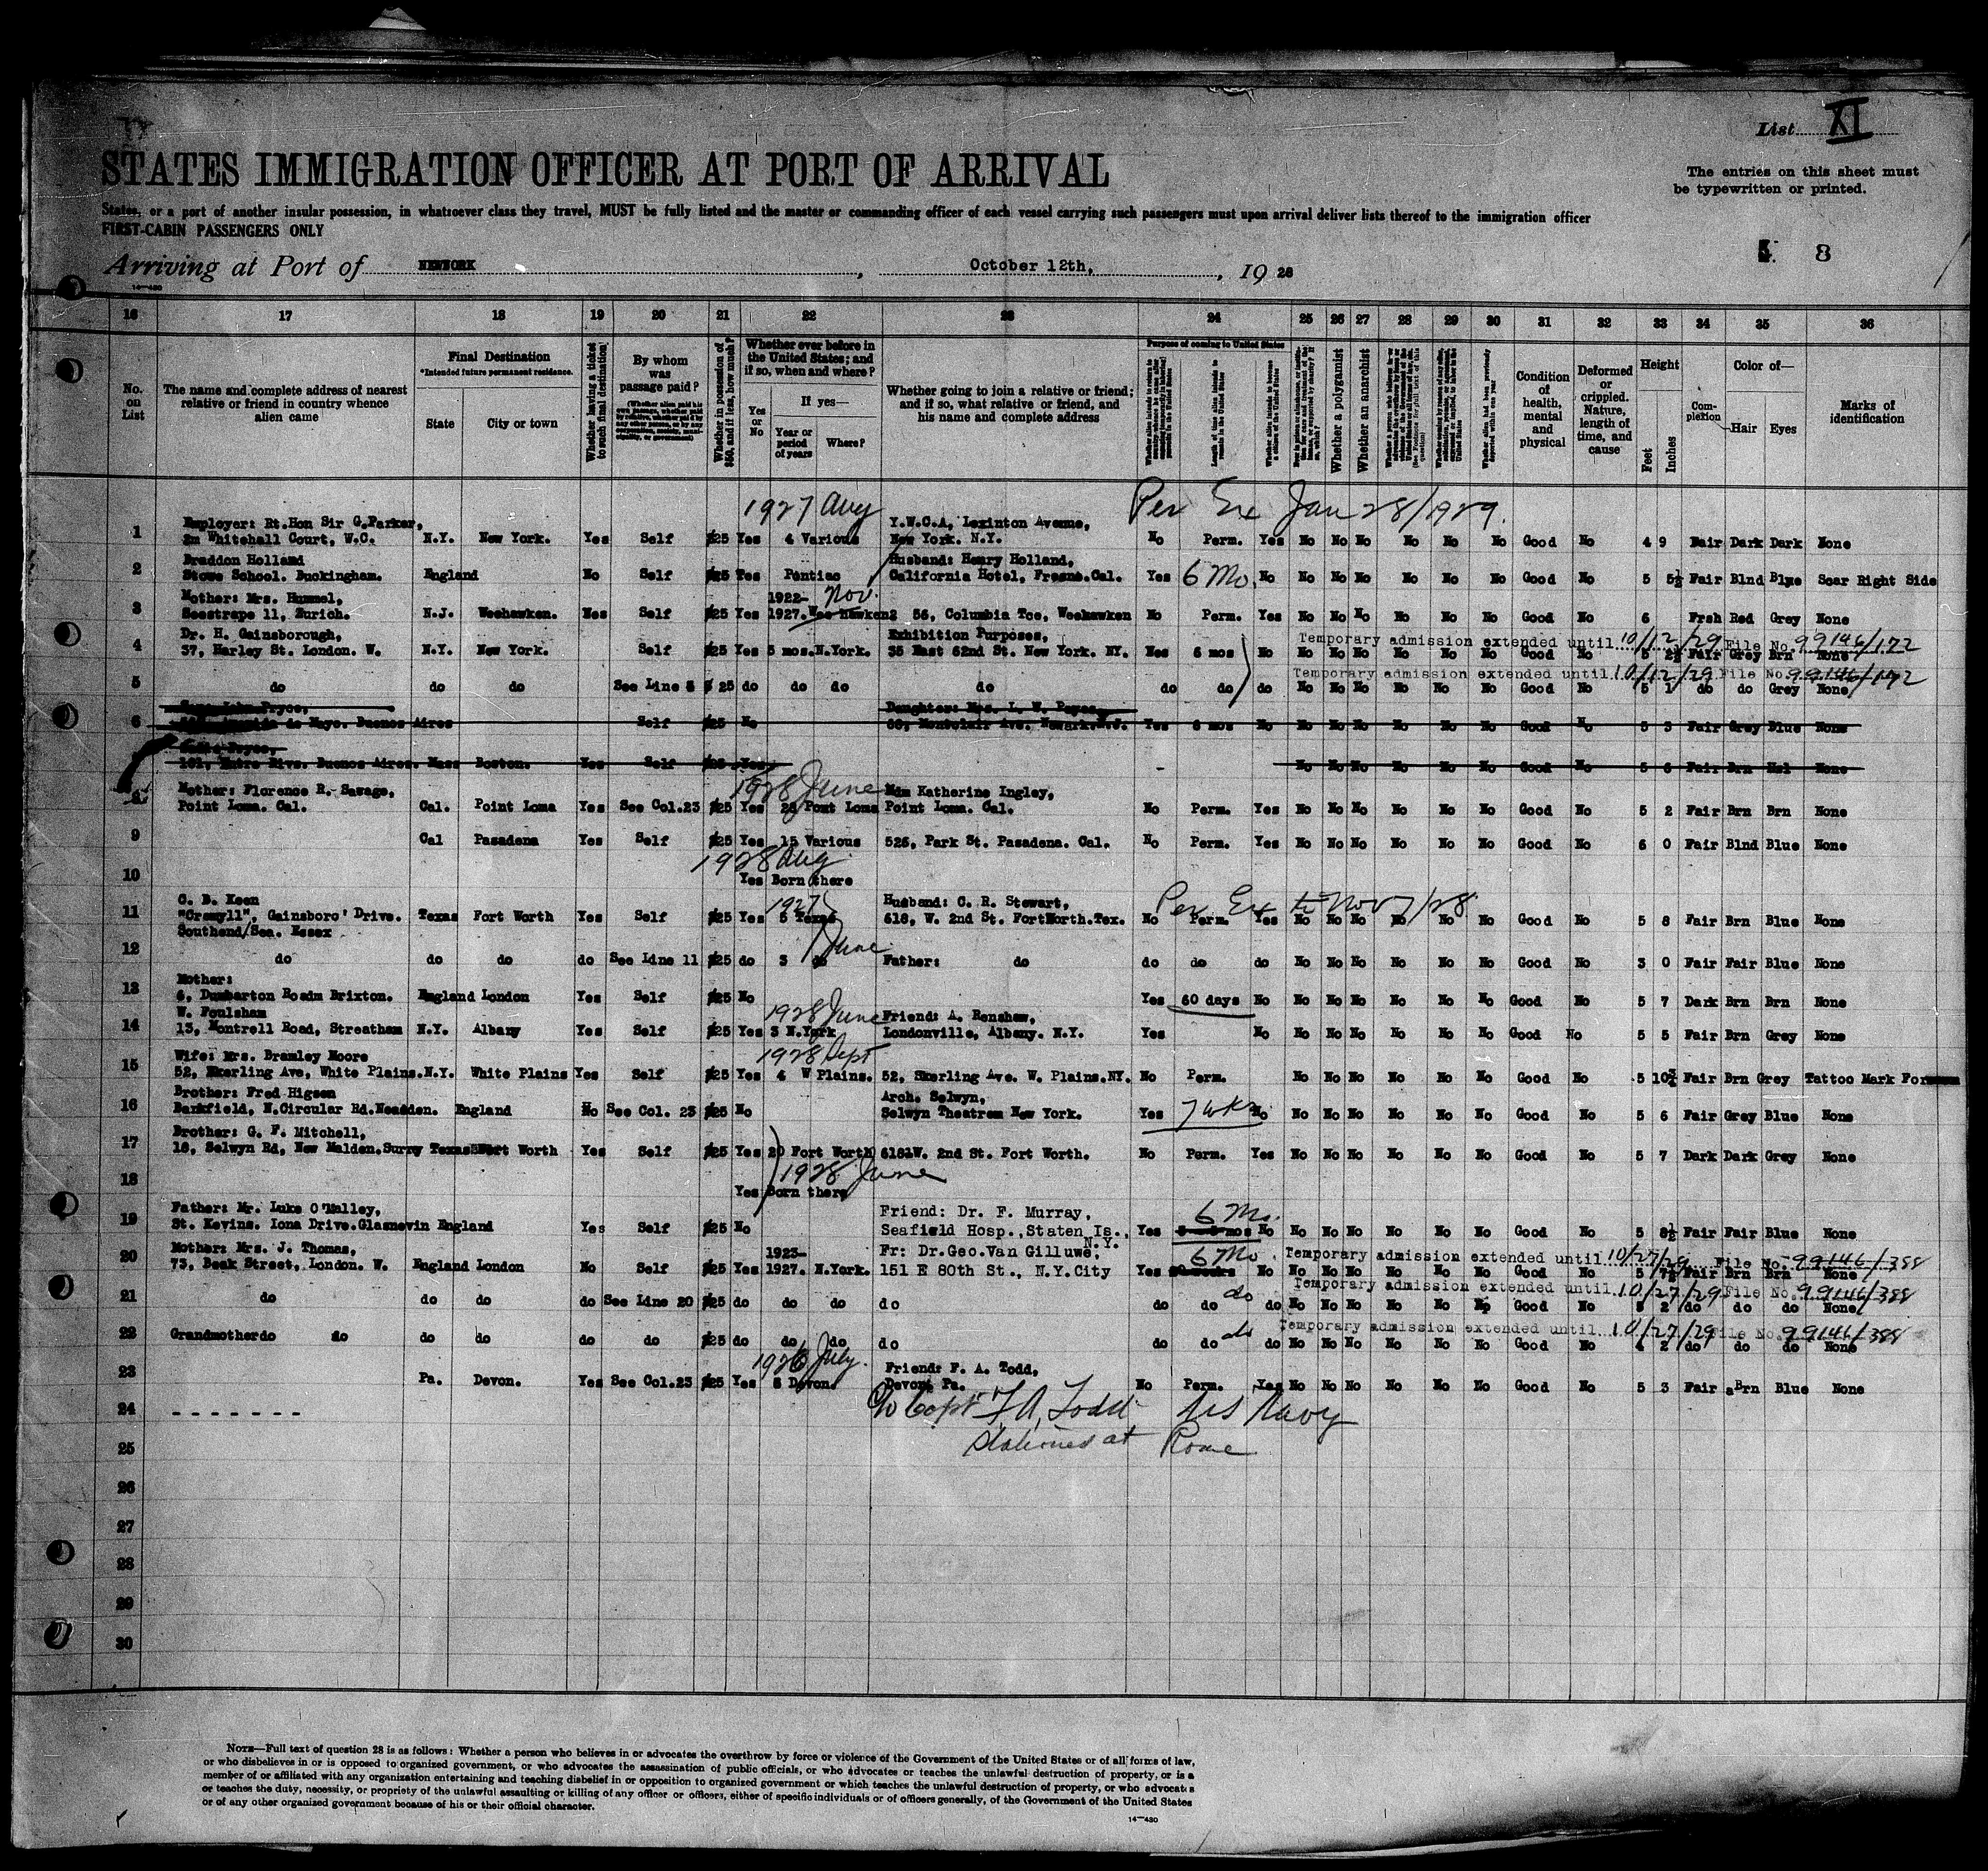 List XI
STATES IMMIGRATION OFFICER AT PORT OF ARRIVAL
The entries on this sheet must
be typewritten or printed.
States, or a port of another insular possession, in whatsoever class they travel, MUST be fully listed and the master or commanding officer of each vessel carrying such passengers must upon arrival deliver lists thereof to the immigration officer
FIRST-CABIN PASSENGERS ONLY
8
Arriving at Port of NEWYORK, October 12th, 1928
14-430
16 17 18 19 20 21 22 23 24 25 26 27 28 29 30 31 32 33 34 35 36
No. on List
The name and complete address of nearest relative or friend in country whence alien came
Final Destination
*Intended future permanent residence.
State City or town
Whether having a ticket to such final destination
By whom was passage paid?
(Whether alien paid his own passage, whether paid by relative, whether paid by any other person, or by any corporation, society, municipality, or government)
Whether in possession of $50, and if less, how much?
Whether ever before in the United States; and if so, when and where?
Yes or No
If yes—
Year or period of years
Where?
Whether going to join a relative or friend; and if so, what relative or friend, and his name and complete address
Purpose of coming to United States
Length of time alien intends to remain in the United States
Whether a polygamist
Whether an anarchist
Condition of health, mental and physical
Deformed or crippled. Nature, length of time, and cause
Height
Feet Inches
Complexion
Color of—
Hair Eyes
Marks of identification
1927 Aug Per Ex Jan 28/1929.
1 Employer: Rt.Hon Sir G.Parker, Y.W.C.A, Lexinton Avenue,
2n Whitehall Court, W.C. N.Y. New York. Yes Self $25 Yes 4 Various New York. N.Y. No Perm. Yes No No No No No No Good No 4 9 Fair Dark Dark None
2 Braddon Holland Husband: Henry Holland,
Stowe School. Buckingham. England No Self $25 Yes Pontiac California Hotel, Fresno.Cal. Yes 6 Mo. No No No No No No No Good No 5 5½ Fair Blnd Blue Scar Right Side
3 Mother: Mrs. Hummel, 1922- Nov.
Seestrape 11, Zurich. N.J. Weehawken. Self $25 Yes 1927. 56, Columbia Tce, Weehawken No Perm. Yes No No No No No No Good No 6 Frsh Red Grey None
4 Dr. H. Gainsborough, Exhibition Purposes, Temporary admission extended until 10/12/29 File No. 99146/172
37, Harley St. London. W. N.Y. New York. Self $25 Yes 5 mos.N.York. 35 East 62nd St. New York. NY. 6 mos No No No No No No No Good No 5 2½ Fair Grey Brn None
Temporary admission extended until 10/12/29 File No. 99146/172
5 do do do See Line 5 $ 25 do do do do do do do No No No No No No Good No 5 do do Grey None
6 Daughter: Mrs. L. W.
de Mayo. Buenos Aires Self $25 No 68, Montclair Ave. Newark.N.J. Yes 6 mos No No No No No No No Good 5 3 Fair Grey Blue None
Buenos Aires. Mass Boston. Yes Self $25 Yes - No No No No No No Good No 5 6 Fair Brn None
8 Mother: Florence R. Savage, 1928 June Katherine Ingley,
Point Loma. Cal. Cal. Point Loma Yes See Col.23 $25 Yes Point Loma Point Loma. Cal. No Perm. Yes No No No No No No Good No 5 2 Fair Brn Brn None
9 Cal Pasadena Yes Self $25 Yes 15 Various 526, Park St. Pasadena. Cal. No Perm. Yes No No No No No No Good No 6 0 Fair Blnd Blue None
1928 Aug
10 Yes Born there
11 C. B. Keen 1927 Husband: C. R. Stewart, Per Ex to Nov 7/28
"Cremyll", Gainsboro' Drive. Texas Fort Worth Yes Self $25 Yes 5 Texas 618, W. 2nd St. FortWorth.Tex. No Perm. Yes No No No No No No Good No 5 8 Fair Brn Blue None
Southend/Sea. Essex June
12 do do do do See Line 11 $25 do 3 do Father: do do do do No No No No No No Good No 3 0 Fair Fair Blue None
13 Mother:
6, Dumbarton Roadm Brixton. England London Yes Self $25 No Yes 60 days No No No No No No No Good No 5 7 Dark Brn Brn None
14 W. Foulsham 1928 June Friend: A. Renshaw,
13, Montrell Road, Streatham N.Y. Albany Yes Self $25 Yes 3 N.York Londonville, Albany. N.Y. Yes No No No No No No No Good No 5 5 Fair Brn Grey None
15 Wife: Mrs. Bramley Moore 1928 Sept
52, Skerling Ave, White Plains.N.Y. White Plains Yes Self $25 Yes 4 W Plains. 52, Skerling Ave. W. Plains.NY. No Perm. No No No No No No Good No 5 10¾ Fair Brn Grey Tattoo Mark
16 Brother: Fred Higson Arch. Selwyn,
Bankfield, N.Circular Rd.Neasden. England No See Col. 23 $25 No Selwyn Theatrem New York. Yes 7 wks No No No No No No No Good No 5 6 Fair Grey Blue None
17 Brother: G. F. Mitchell,
18, Selwyn Rd, New Malden.Surry Texas Fort Worth Yes Self $25 Yes 20 Fort Worth 618 W. 2nd St. Fort Worth. No Perm. Yes No No No No No No Good No 5 7 Dark Dark Grey None
1928 June
18 Yes Born there
19 Father: Mr. Luke O'Malley, Friend: Dr. F. Murray, 6 Mo.
St. Kevins. Iona Drive.Glasnevin England Yes Self $25 No Seafield Hosp.,Staten Is., N.Y. Yes mos No No No No No No No Good No 5 8½ Fair Fair Blue None
20 Mother: Mrs. J. Thomas, 1923- Fr: Dr.Geo.Van Gilluwe, 6 Mo. Temporary admission extended until 10/27/29 File No. 99146/388
73, Beak Street, London. W. England London No Self $25 Yes 1927. N.York. 151 E 80th St., N.Y.City Yes No No No No No No No Good No 5 7½ Fair Brn Brn None
Temporary admission extended until 10/27/29 File No. 99146/388
21 do do do do See Line 20 $25 do do do do do do do do No No No No No No Good No 5 2 do do do None
Temporary admission extended until 10/27/29 File No. 99146/388
22 Grandmother do do do do do do $25 do do do do do do do do No No No No No No Good No 4 2 do do do None
23 1926 July. Friend: F. A. Todd,
Pa. Devon. Yes See Col.23 $25 Yes 8 Devon. Devon, Pa. No Perm. Yes No No No No No No Good No 5 3 Fair Brn Blue None
24 - - - - - - - c/o Capt F A, Todd, US Navy
25 Stationed at Rome
26
27
28
29
30
NOTE—Full text of question 28 is as follows: Whether a person who believes in or advocates the overthrow by force or violence of the Government of the United States or of all forms of law,
or who disbelieves in or is opposed to organized government, or who advocates the assassination of public officials, or who advocates or teaches the unlawful destruction of property, or is a
member of or affiliated with any organization entertaining and teaching disbelief in or opposition to organized government or which teaches the unlawful destruction of property, or who advocates
or teaches the duty, necessity, or propriety of the unlawful assaulting or killing of any officer or officers, either of specific individuals or of officers generally, of the Government of the United States
or of any other organized government because of his or their official character.
14-430